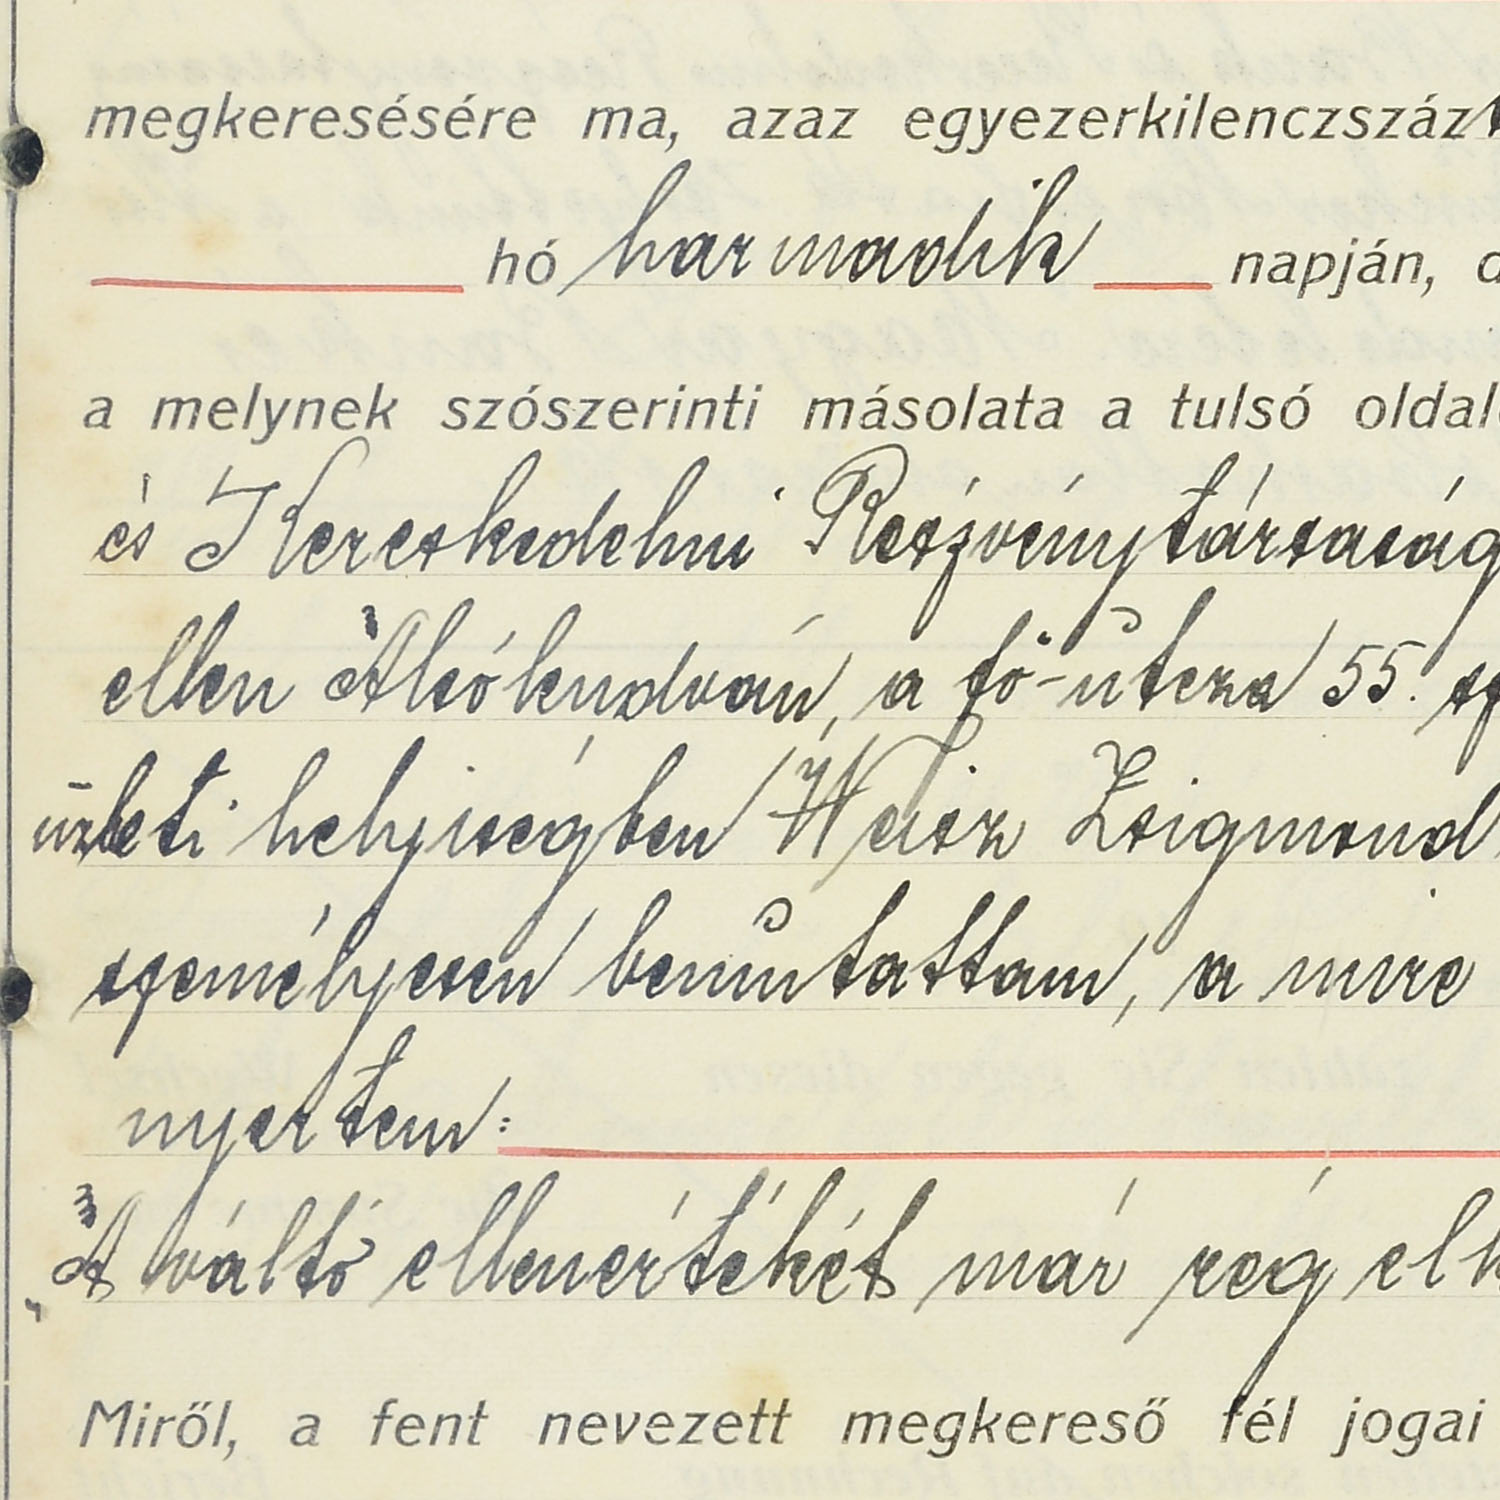 megkeresésére ma, azaz egyezerkilenczszázt
hó harmadik napján, d
a melynek szószerinti másolata a tulsó oldal
és Kereskedelmi Reszvénytársaság
ellen Alsólendván, a fő-utcza 55. sz
üzleti helyiségben Weisz Zsigmond
személyesen bemutattam, a mire
nyertem:
„A váltó ellenértékét már rég elk
Miről, a fent nevezett megkereső fél jogai